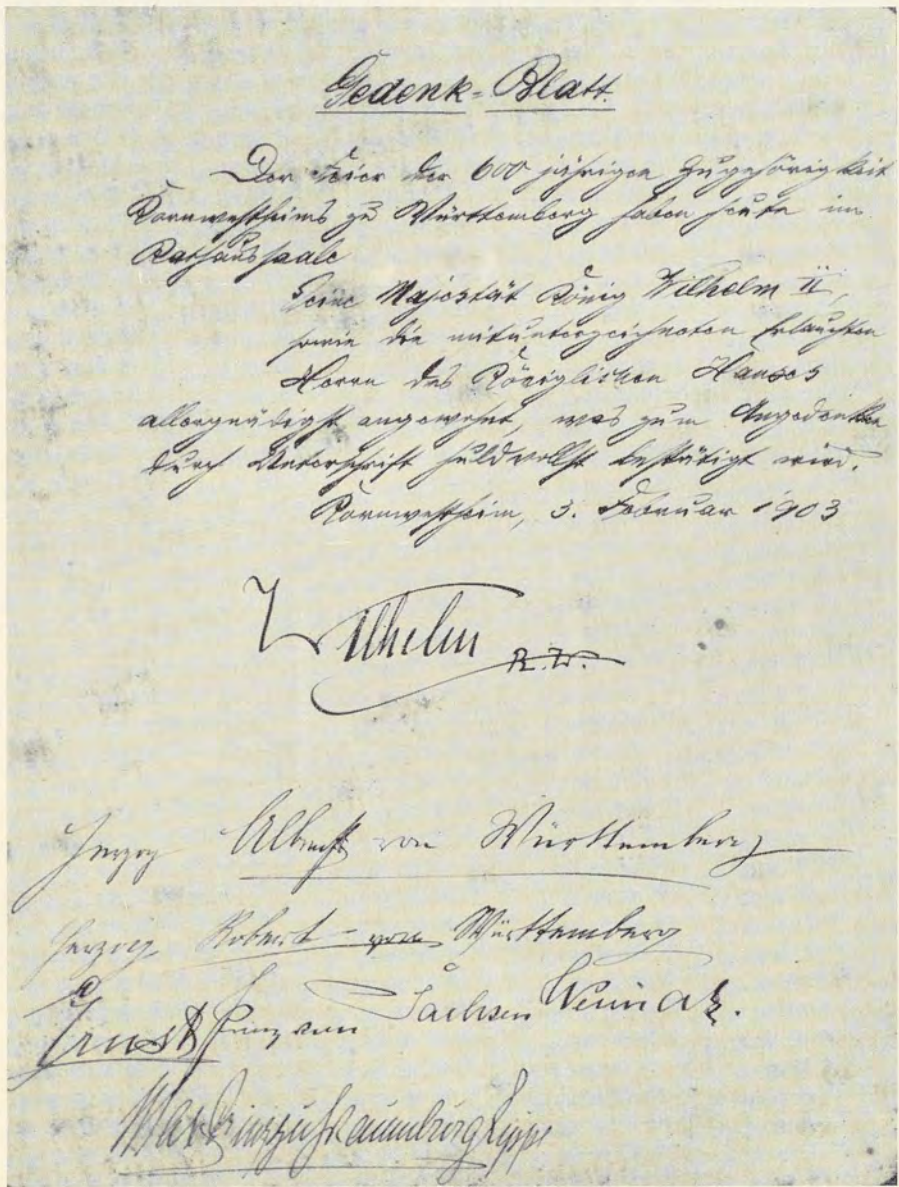 Gedenk-Blatt.
Der Feier der 600 jährigen Zugehörigkeit
Kornwestheims zu Württemberg haben heute im
Rathaussaale
Seine Majestät König Wilhelm II,
sowie die mitunterzeichneten Erlauchten
Herrn des Königlichen Hauses
allergnädigst angewohnt, was zum Angedenken
durch Unterschrift huldvollst bestätigt wird.
Kornwestheim, 3. Februar 1903
Wilhelm R.W.
Herzog Albrecht von Württemberg
Herzog Robert von Württemberg
Ernst Prinz von Sachsen Weimar.
Max Prinz zu Schaumburg Lippe